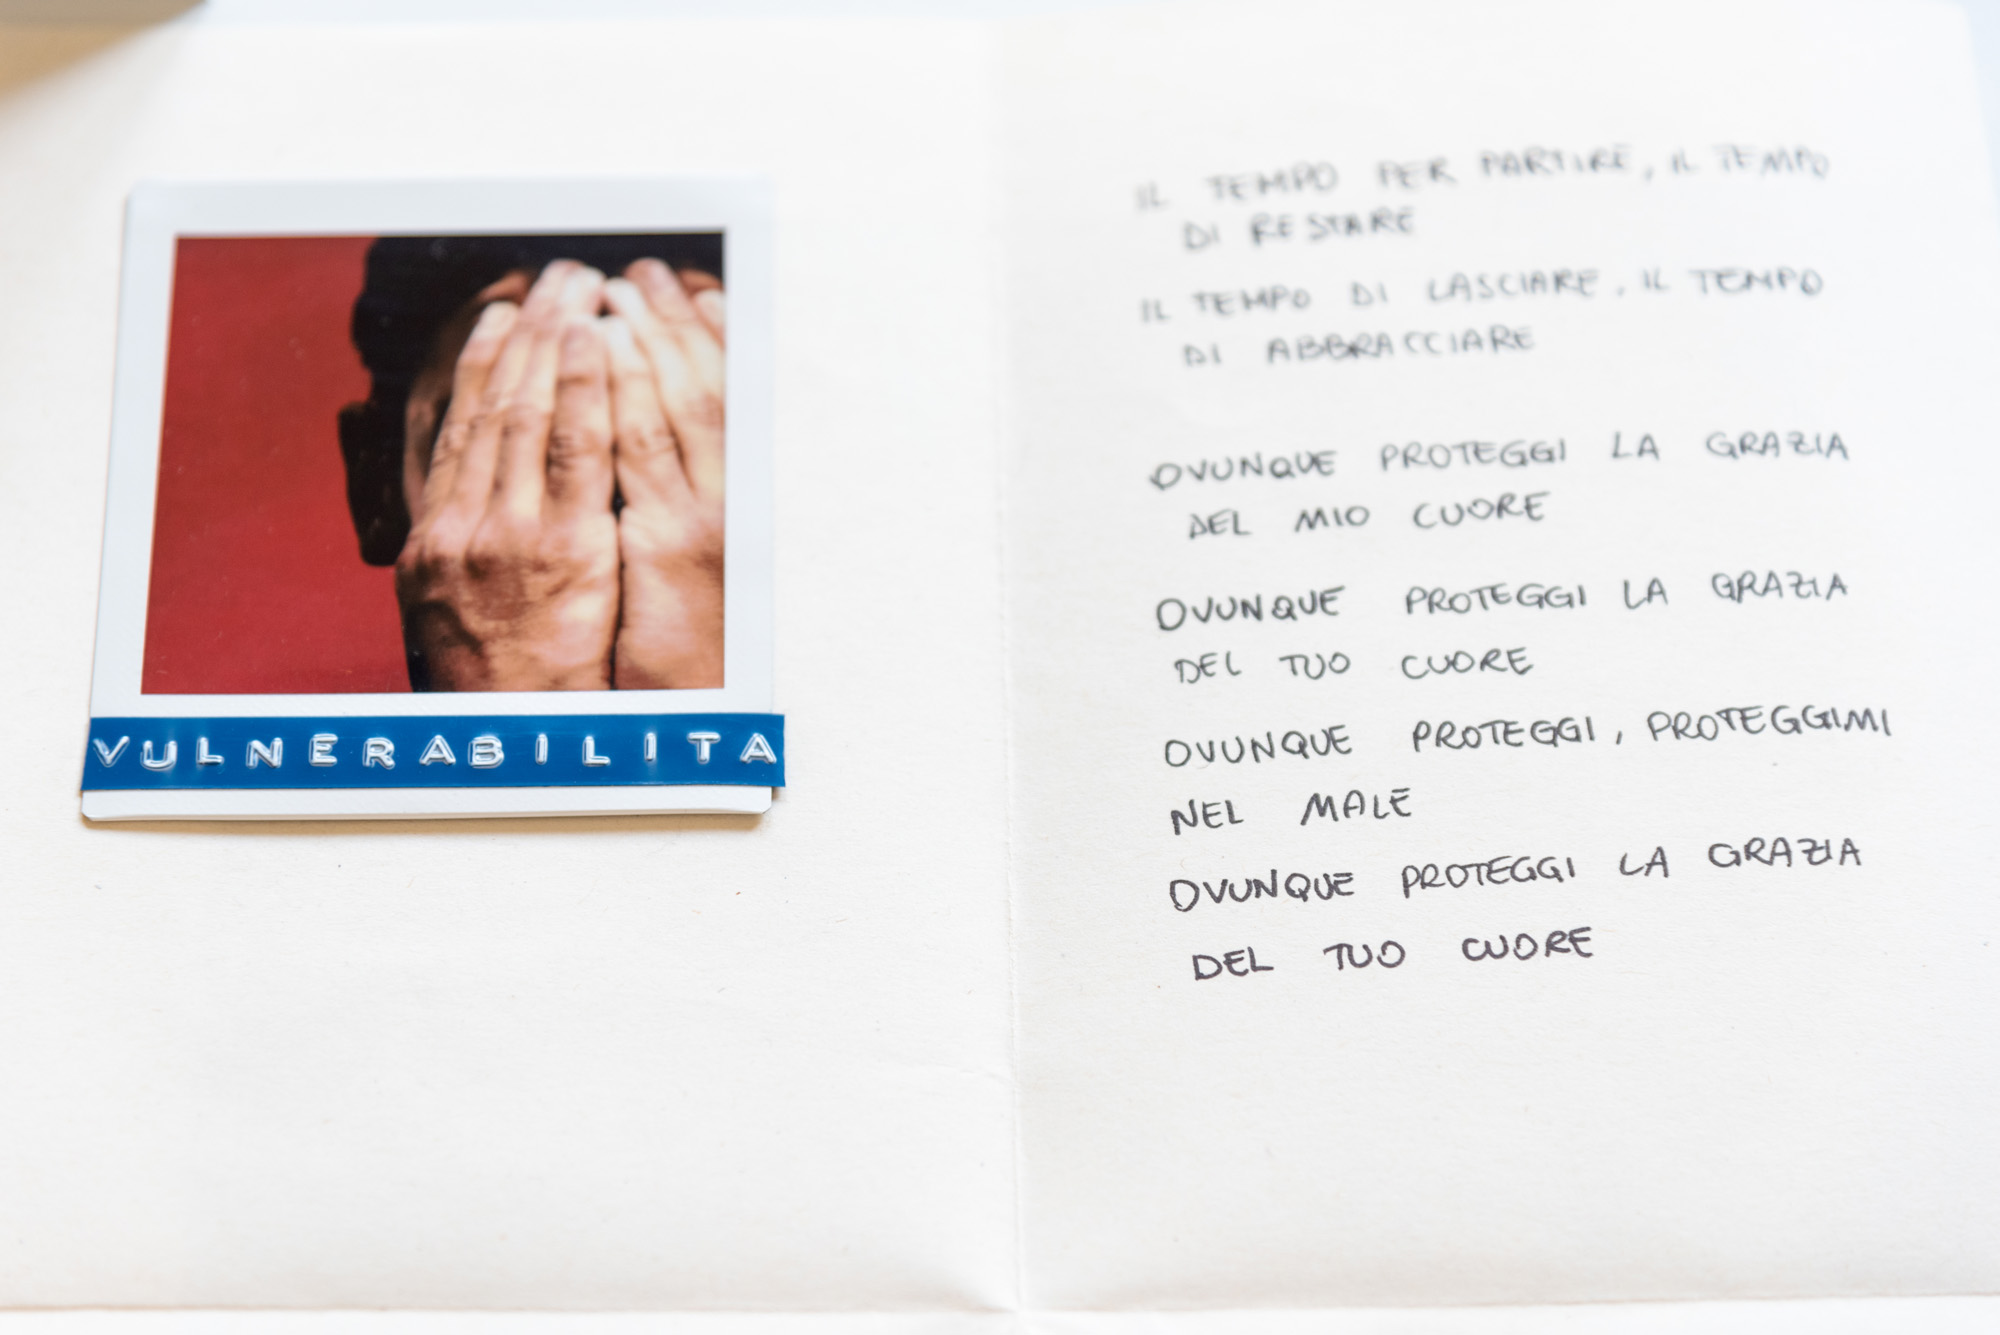 VULNERABILITA
IL TEMPO PER PARTIRE, IL TEMPO
DI RESTARE
IL TEMPO DI LASCIARE, IL TEMPO
DI ABBRACCIARE
OVUNQUE PROTEGGI LA GRAZIA
DEL MIO CUORE
OVUNQUE PROTEGGI LA GRAZIA
DEL TUO CUORE
OVUNQUE PROTEGGI, PROTEGGIMI
NEL MALE
OVUNQUE PROTEGGI LA GRAZIA
DEL TUO CUORE